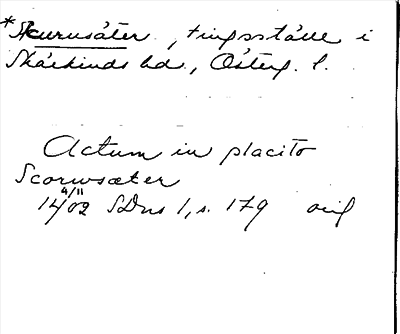 *Skurusäter, tingsställe i
Skärkinds hd., Österg. l.
Actum in placito
Scorwsæter
4/11
1402 SDns 1, s. 179 orig